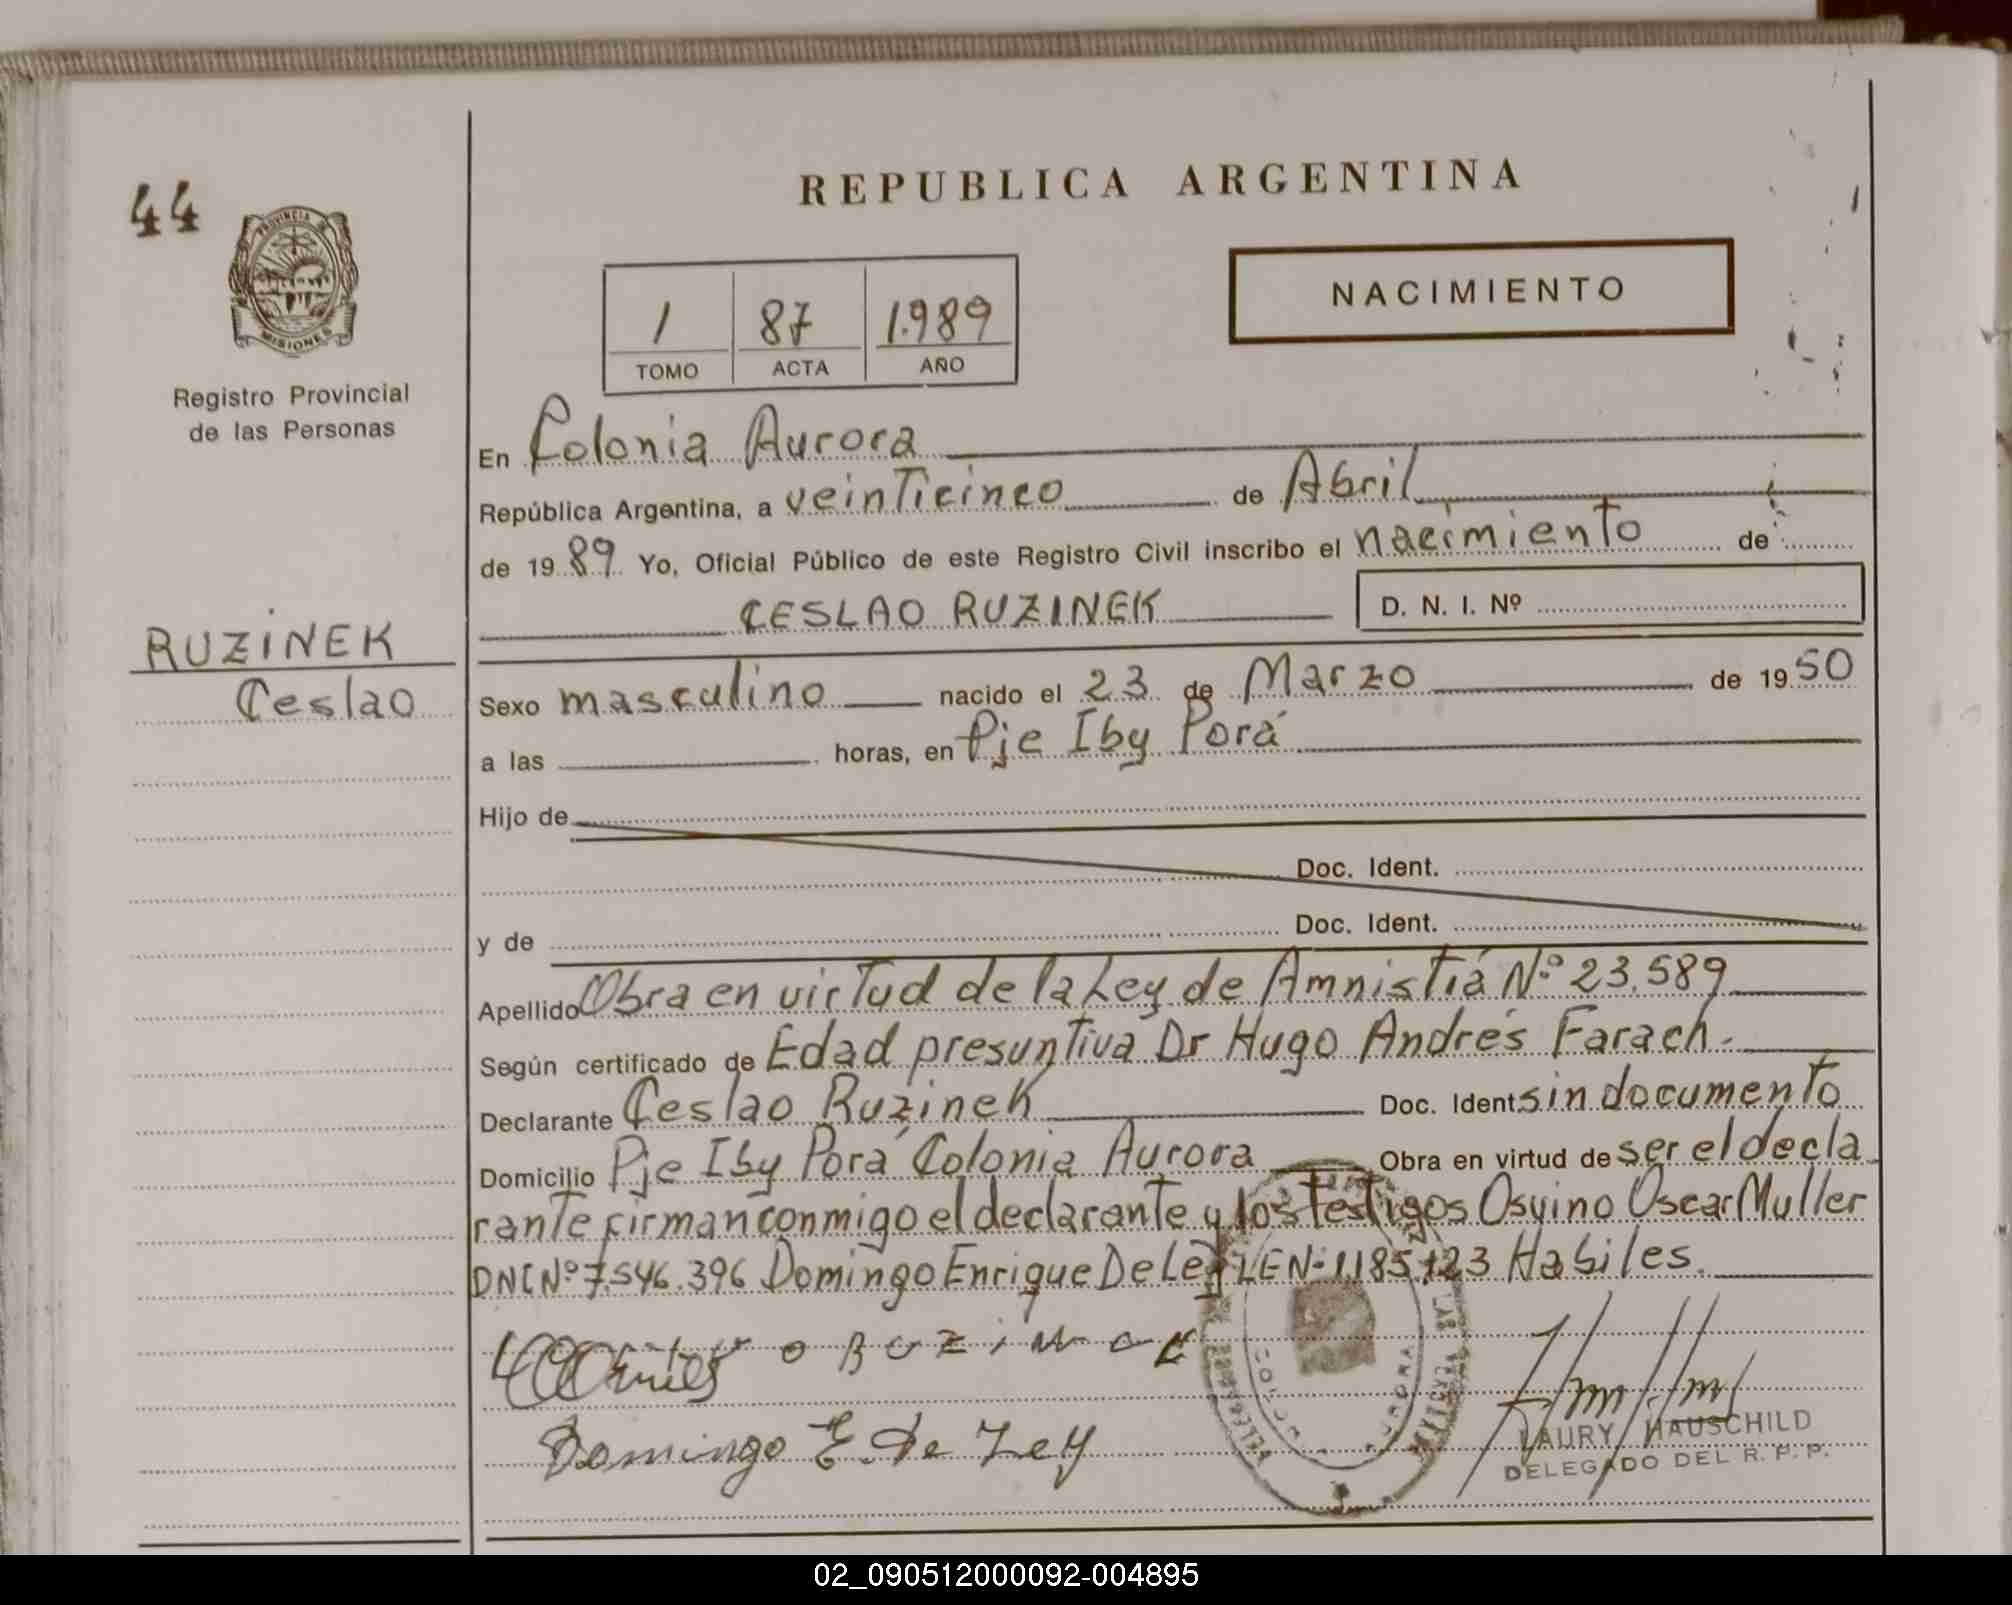 44
PROVINCIA DE
MISIONES
Registro Provincial
de las Personas
REPUBLICA ARGENTINA
NACIMIENTO
1 87 1.989
TOMO ACTA AÑO
En Colonia Aurora
República Argentina, a veinticinco de Abril
de 1989 Yo, Oficial Público de este Registro Civil inscribo el nacimiento de
CESLAO RUZINEK D. N. I. Nº
RUZINEK
Ceslao
Sexo masculino nacido el 23 de Marzo de 1950
a las horas, en Pje Iby Porá
Hijo de
Doc. Ident.
y de Doc. Ident.
Apellido Obra en virtud de la Ley de Amnistiá Nº 23.589
Según certificado de Edad presuntiva Dr Hugo Andrés Farach.
Declarante Ceslao Ruzinek Doc. Ident sin documento
Domicilio Pje Iby Porá Colonia Aurora Obra en virtud de ser el decla
rante firman conmigo el declarante y los testigos Osvino Oscar Muller
DNI Nº 7.546.396 Domingo Enrique De Ley LE Nº 1.185.123 Habiles.
o RUZiNeK
Domingo E. De Ley
LAURY HAUSCHILD
DELEGADO DEL R. P. P.
02_090512000092-004895